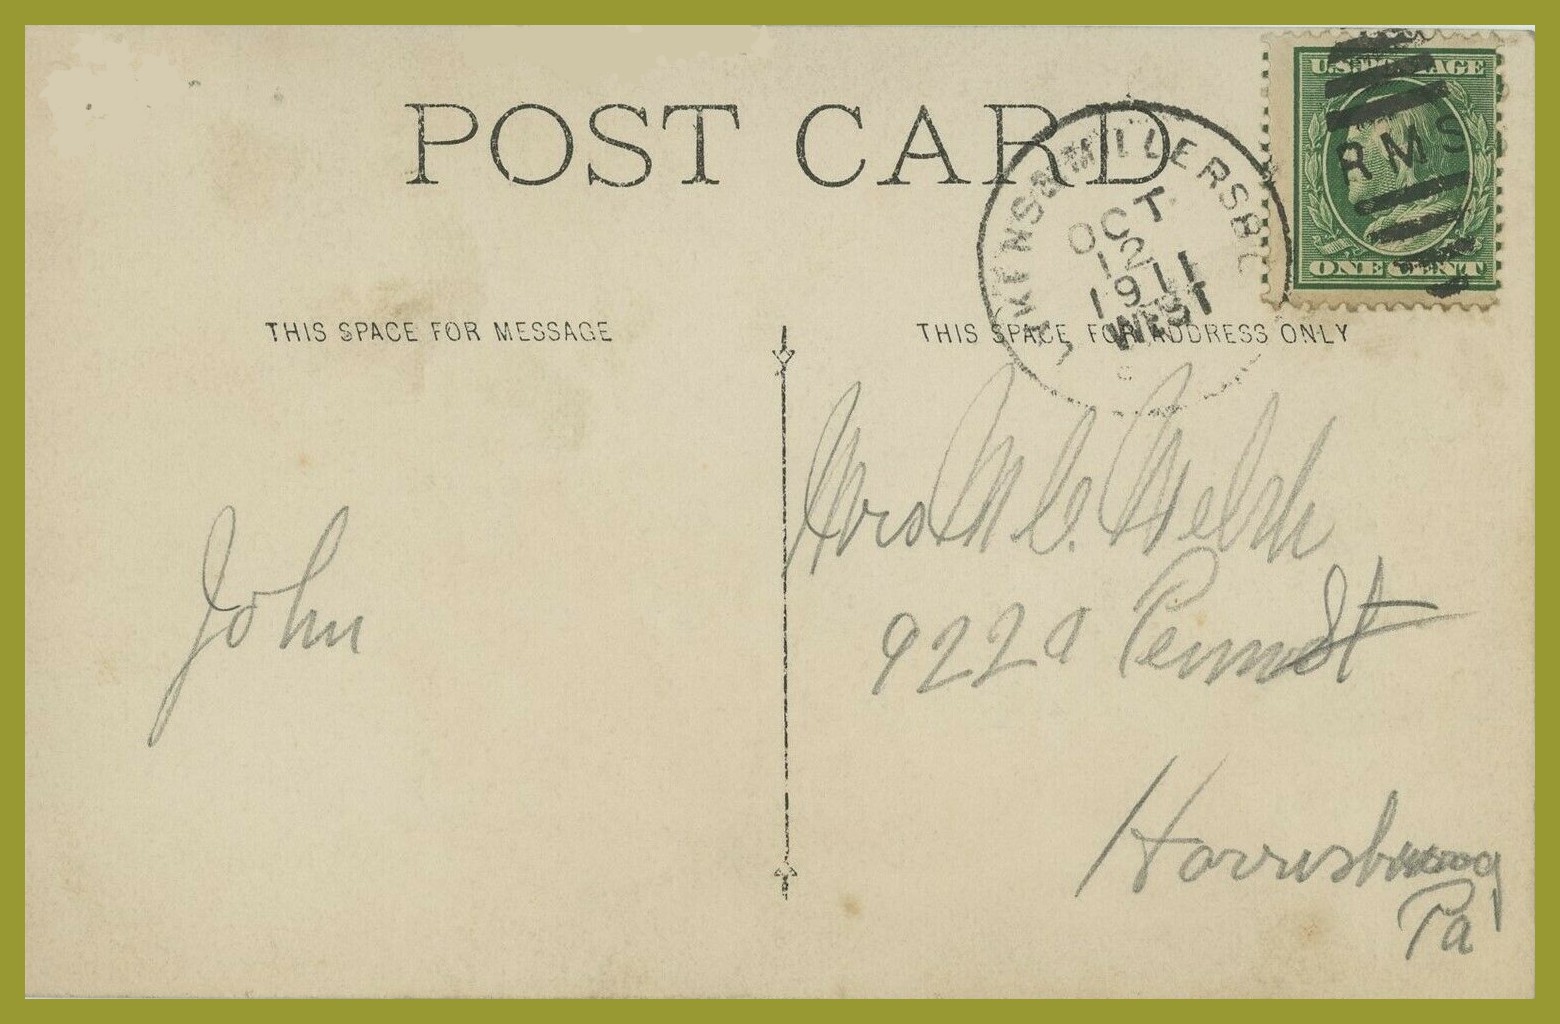 POST CARD
U.S. POSTAGE
RMS
LYKENS & MILLERSB
OCT
12
1911
WEST
ONE CENT
THIS SPACE FOR MESSAGE
THIS SPACE FOR ADDRESS ONLY
John
Mrs M C. Welsh
922a Penn St
Harrisburg
Pa